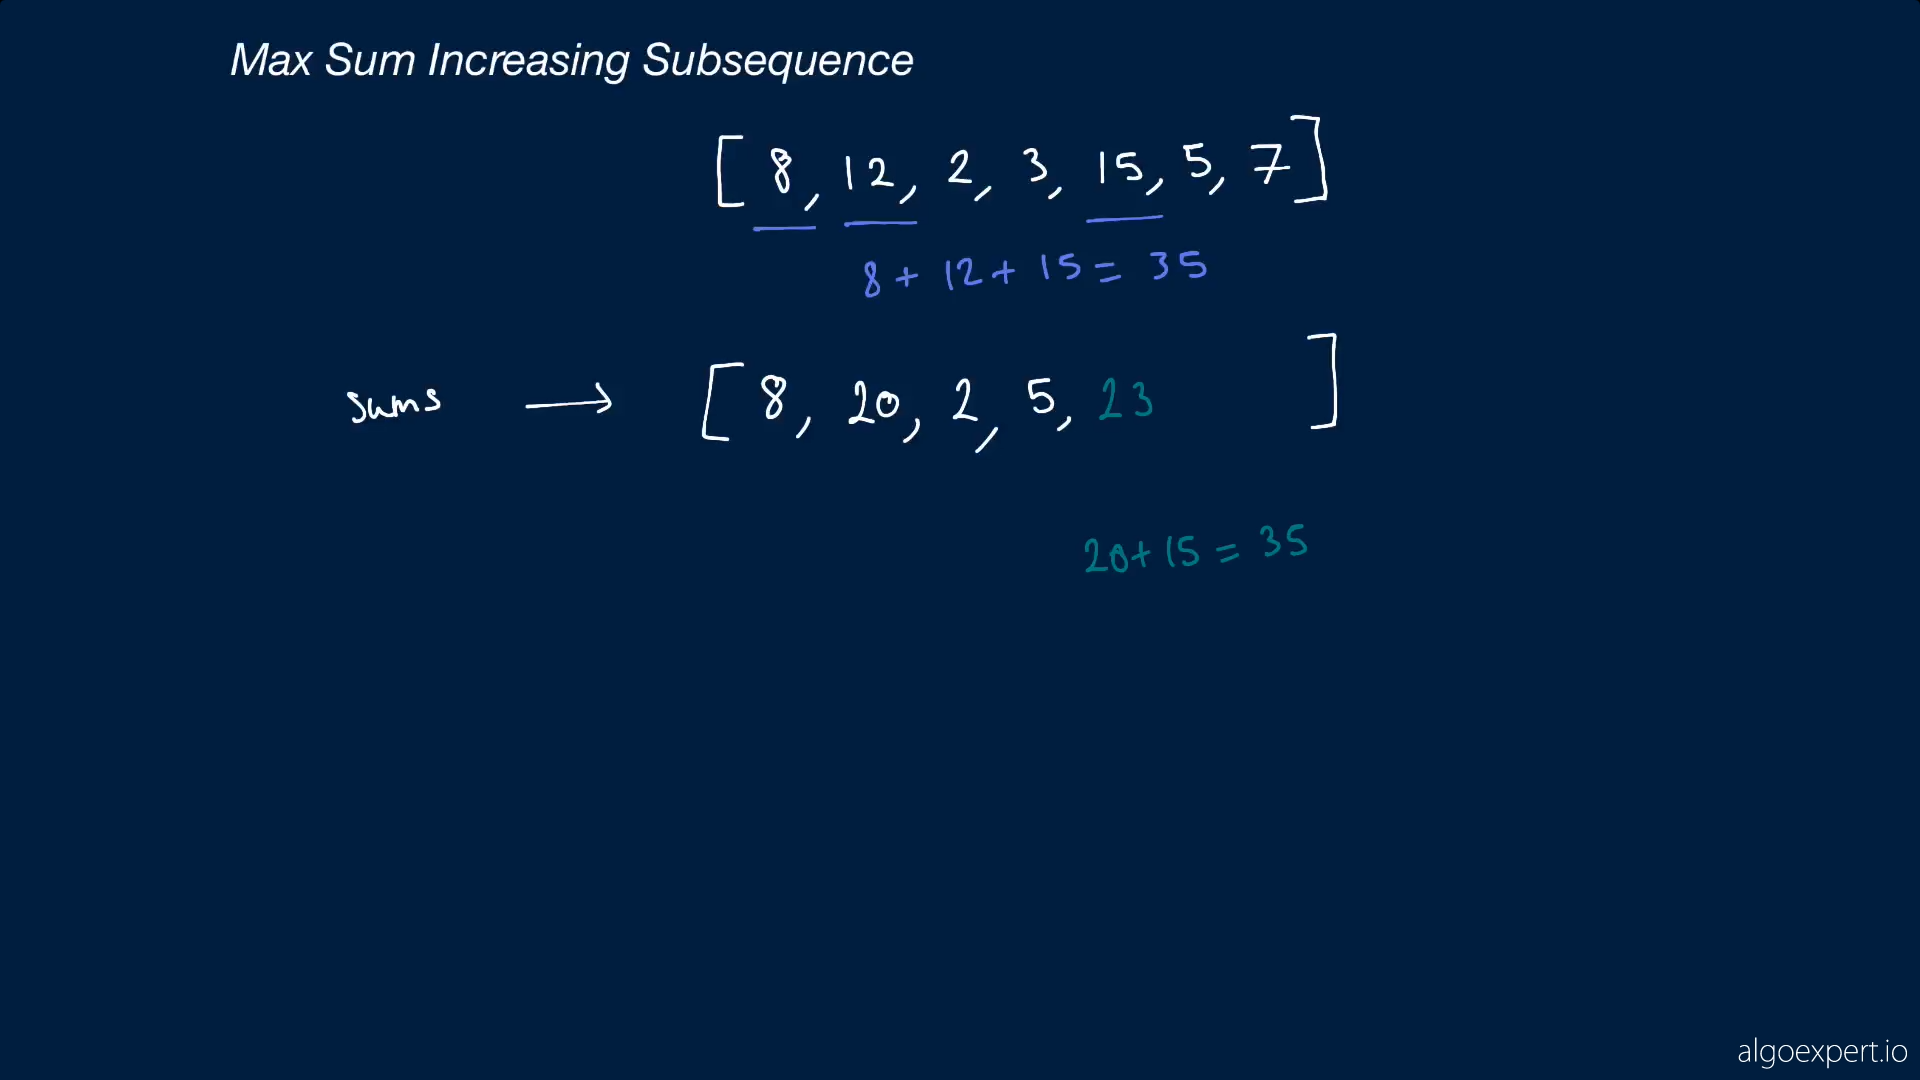 Max Sum Increasing Subsequence
[ 8, 12, 2, 3, 15, 5, 7 ]
8 + 12 + 15 = 35
sums → [ 8, 20, 2, 5, 23 ]
20 + 15 = 35
algoexpert.io